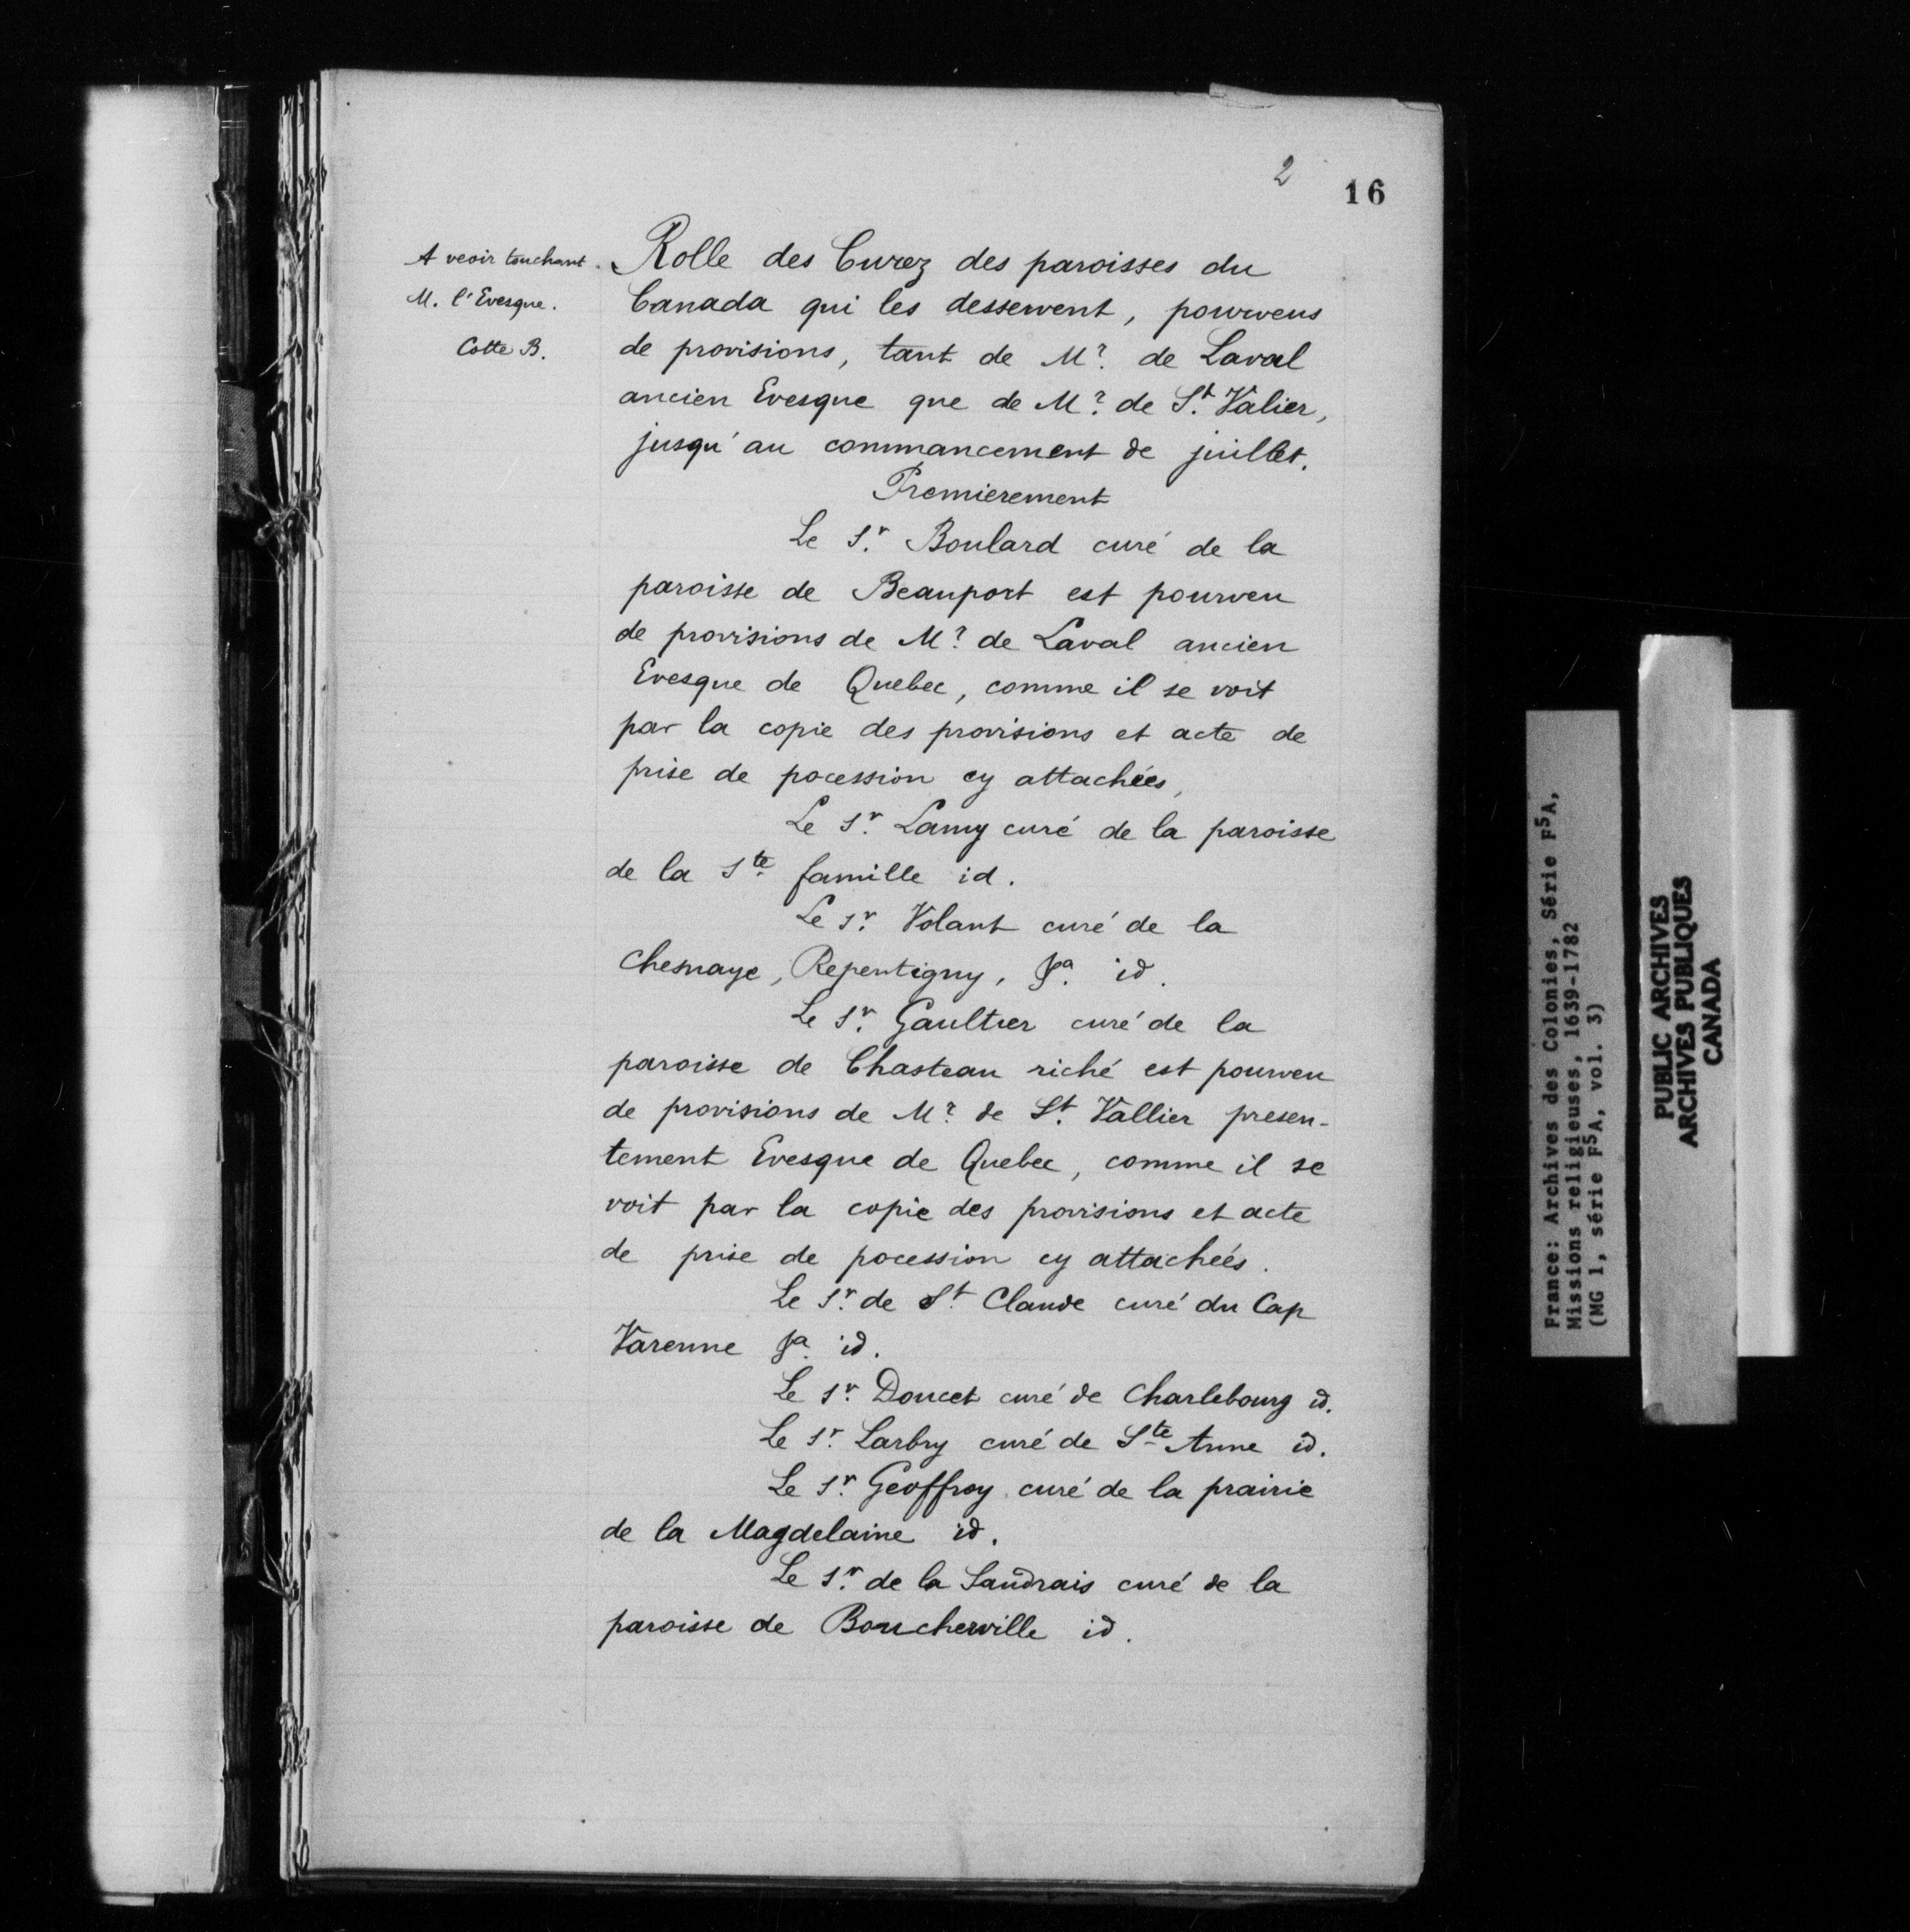 2
16
A veoir touchant
M. l'Evesque.
Cotte B.
Rolle des Curez des paroisses du
Canada qui les desservent, pourveus
de provisions, tant de Mr. de Laval
ancien Evesque que de Mr. de St. Valier,
jusqu'au commancement de juillet.
Premierement
Le Sr. Boulard curé de la
paroisse de Beauport est pourveu
de provisions de Mr. de Laval ancien
Evesque de Quebec, comme il se voit
par la copie des provisions et acte de
prise de pocession cy attachées,
Le Sr. Lamy curé de la paroisse
de la Ste. famille id.
Le Sr. Volant curé de la
Chesnaye, Repentigny, &a. id.
Le Sr. Gaultier curé de la
paroisse de Chasteau riché est pourveu
de provisions de Mr. de St. Vallier presen-
tement Evesque de Quebec, comme il se
voit par la copie des provisions et acte
de prise de pocession cy attachées.
Le Sr. de St. Claude curé du Cap
Varenne &a. id.
Le Sr. Doucet curé de Charlebourg id.
Le Sr. Larbry curé de Ste Anne id.
Le Sr. Geoffroy curé de la prairie
de la Magdelaine id.
Le Sr. de la Saudrais curé de la
paroisse de Boucherville id.
France: Archives des Colonies, Série F5A,
Missions religieuses, 1639-1782
(MG 1, série F5A, vol. 3)
PUBLIC ARCHIVES
ARCHIVES PUBLIQUES
CANADA